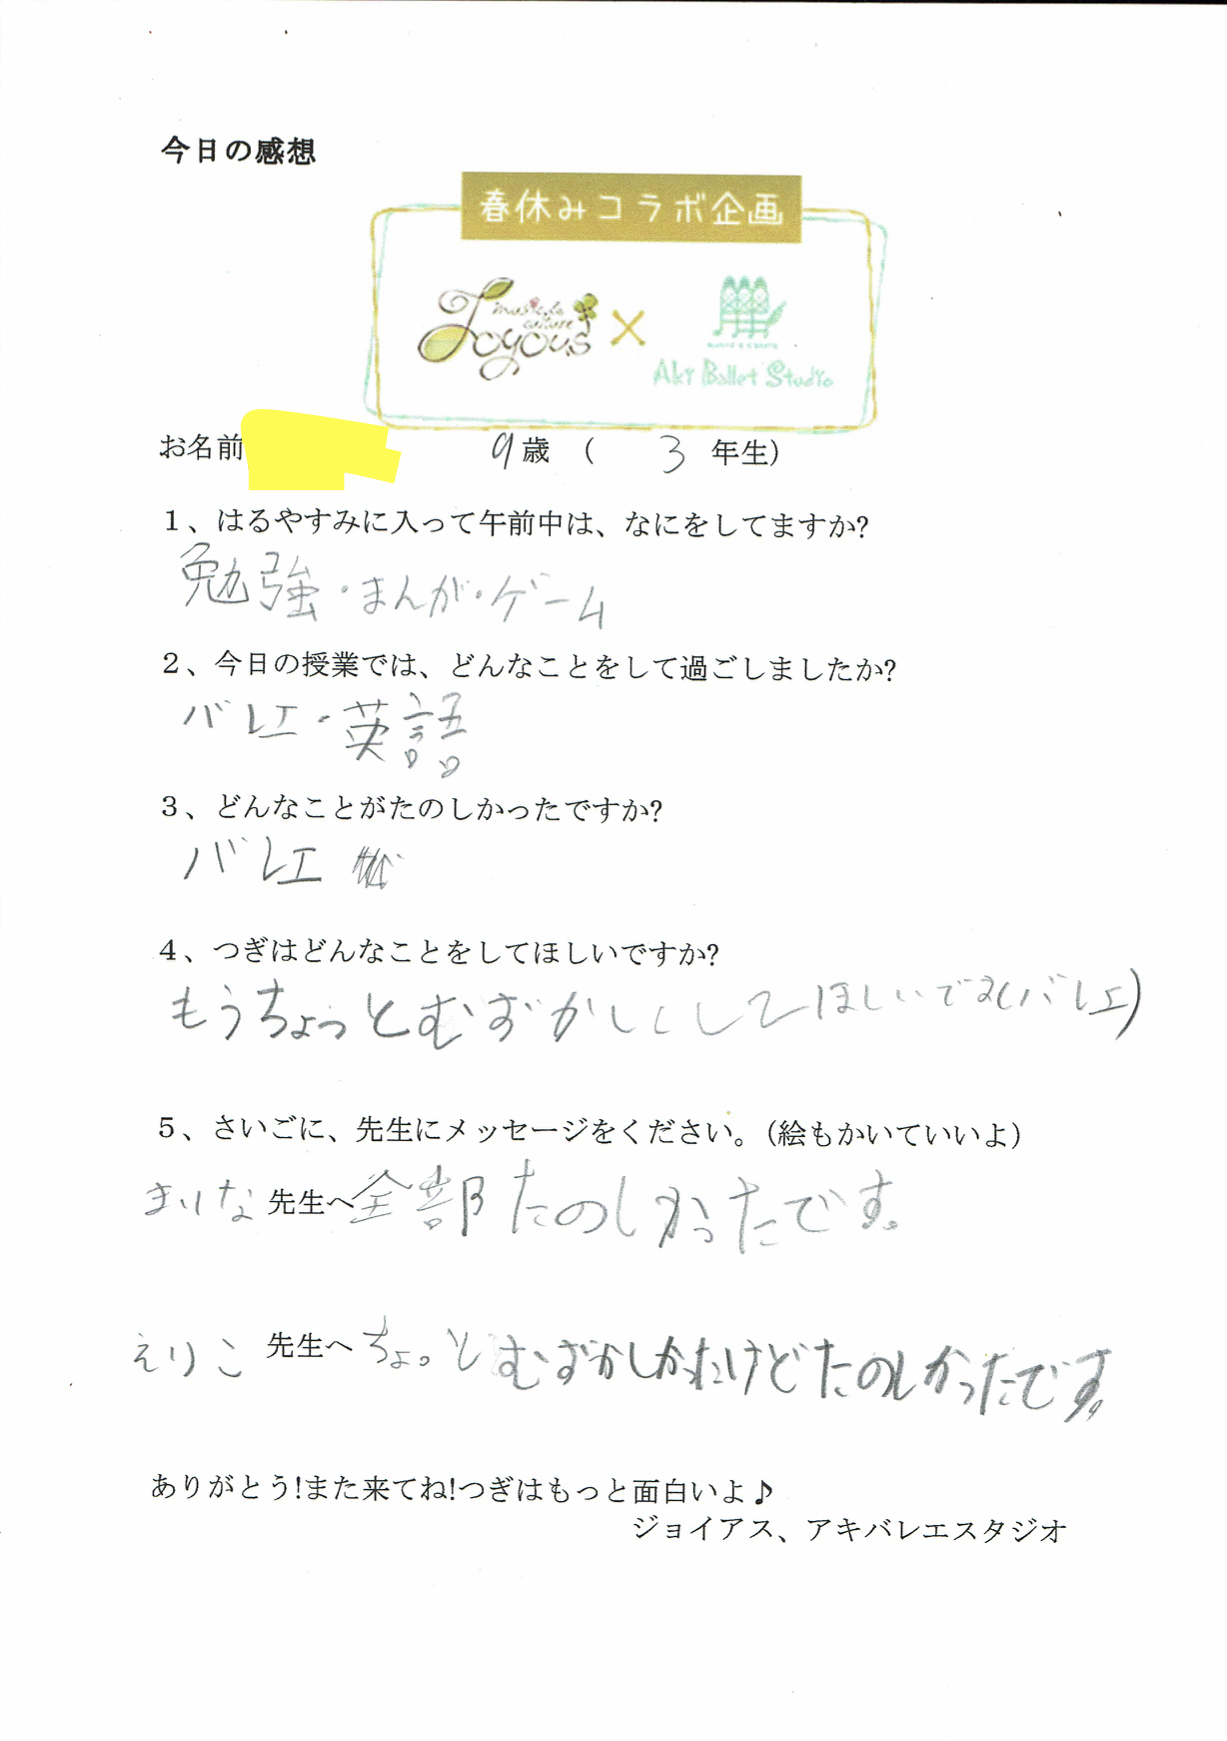 今日の感想
春休みコラボ企画
music de culture Joyous × Aki Ballet Studio
お名前 9歳 ( 3 年生)
1、はるやすみに入って午前中は、なにをしてますか?
勉強・まんが・ゲーム
2、今日の授業では、どんなことをして過ごしましたか?
バレエ・英語
3、どんなことがたのしかったですか?
バレエ
4、つぎはどんなことをしてほしいですか?
もうちょっとむずかしくしてほしいです(バレエ)
5、さいごに、先生にメッセージをください。(絵もかいていいよ)
まりな 先生へ 全部たのしかったです。
えりこ 先生へ ちょっとむずかしかったけどたのしかったです。
ありがとう!また来てね!つぎはもっと面白いよ♪
ジョイアス、アキバレエスタジオ